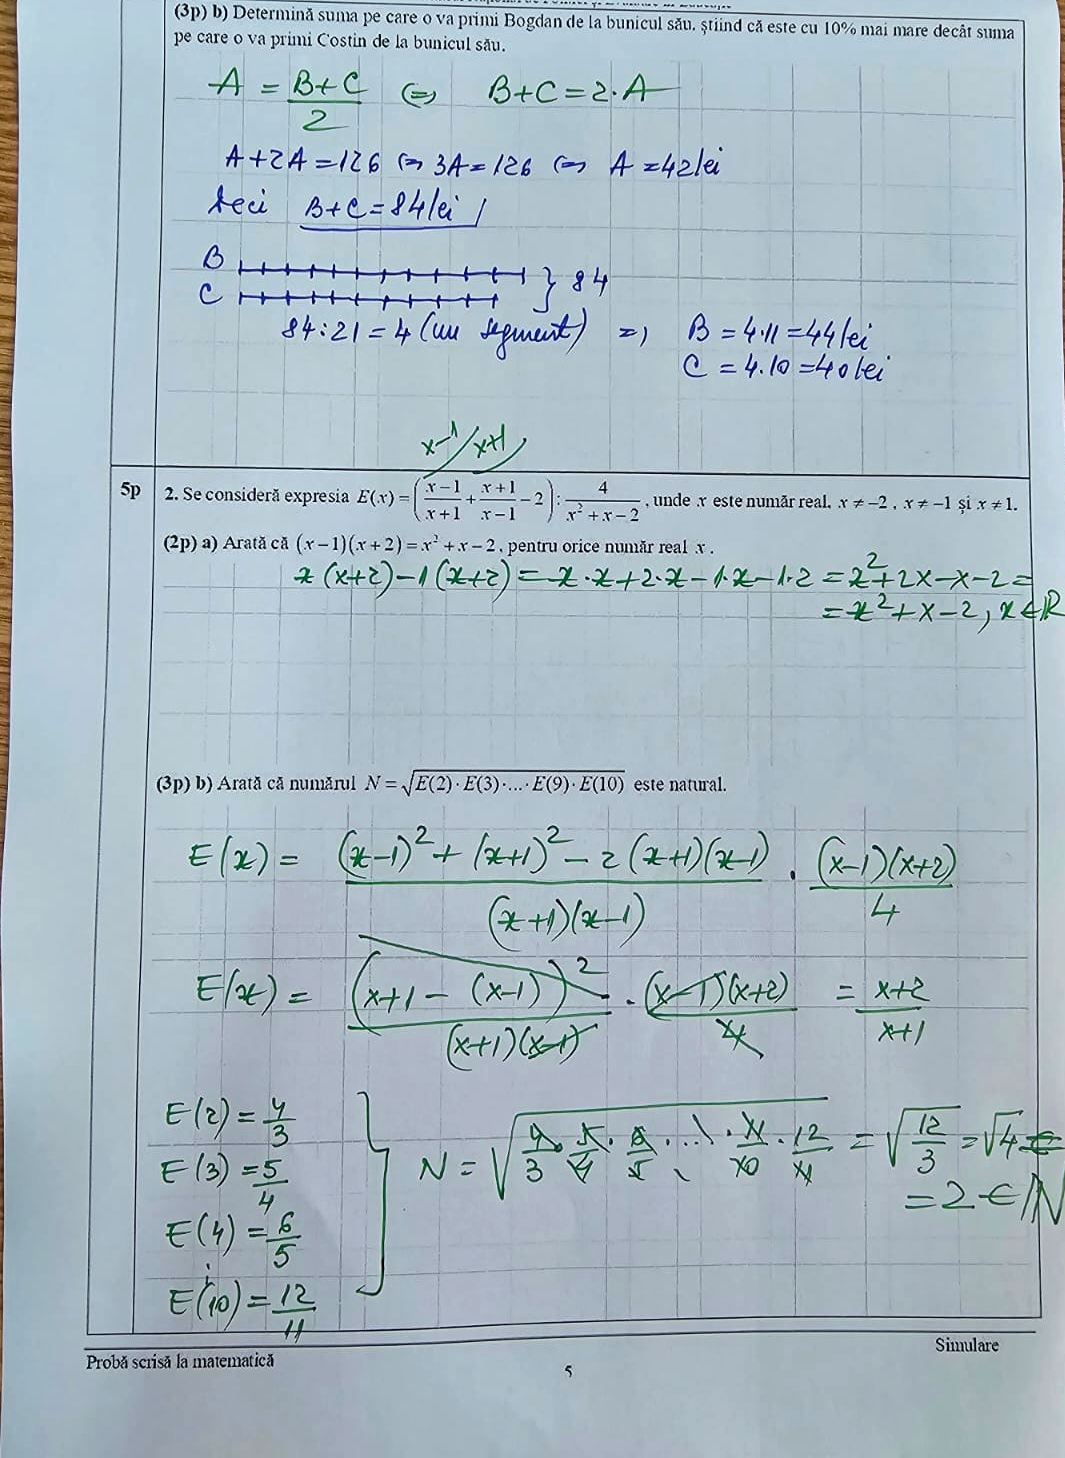 (3p) b) Determină suma pe care o va primi Bogdan de la bunicul său, știind că este cu 10% mai mare decât suma
pe care o va primi Costin de la bunicul său.
A = (B+C)/2 ⇔ B+C = 2·A
A+2A=126 ⇔ 3A=126 ⇔ A=42 lei
Deci B+C=84 lei
B
C } 84
84:21=4 (un segment) ⇒ B=4·11=44 lei
C=4·10=40 lei
x-1) x+1)
5p 2. Se consideră expresia E(x) = ((x-1)/(x+1) + (x+1)/(x-1) - 2) : 4/(x²+x-2), unde x este număr real, x ≠ -2, x ≠ -1 și x ≠ 1.
(2p) a) Arată că (x-1)(x+2) = x²+x-2, pentru orice număr real x.
x(x+2)-1(x+2) = x·x+2·x-1·x-1·2 = x²+2x-x-2 =
= x²+x-2, x∈ℝ
(3p) b) Arată că numărul N = √(E(2)·E(3)·...·E(9)·E(10)) este natural.
E(x) = ((x-1)²+(x+1)²-2(x+1)(x-1))/((x+1)(x-1)) · ((x-1)(x+2))/4
E(x) = (x+1-(x-1))²/((x+1)(x-1)) · ((x-1)(x+2))/4 = (x+2)/(x+1)
E(2) = 4/3
E(3) = 5/4
E(4) = 6/5
⋮
E(10) = 12/11
N = √(4/3 · 5/4 · 6/5 · ... · 11/10 · 12/11) = √(12/3) = √4 =
= 2 ∈ ℕ
Probă scrisă la matematică
Simulare
5